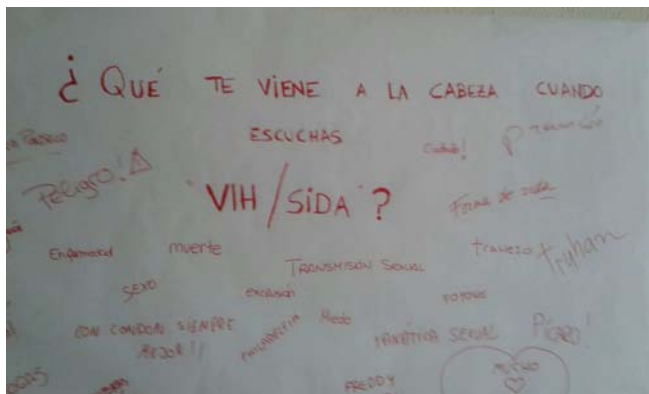 ¿QUÉ TE VIENE A LA CABEZA CUANDO
ESCUCHAS
"VIH/SIDA"?
Peligro!
Forma de vida
Enfermedad
muerte
TRANSMISION SEXUAL
travieso
truhan
SEXO
exclusión
CON CONDON SIEMPRE
MEJOR!!
PHILADELPHIA
Miedo
SEXUAL
PÍCARO!
FREDDY
MUCHO